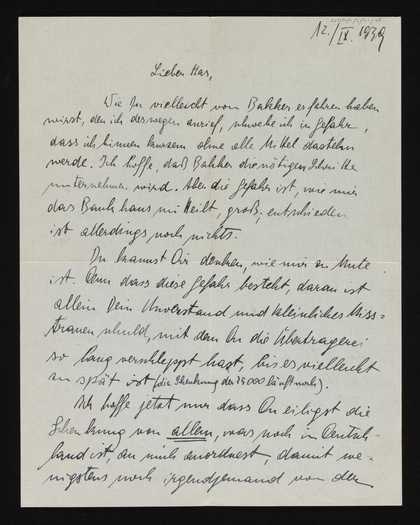 12./IX. 1939
Lieber Has,
Wie Du vielleicht von Bakker erfahren haben
wirst, den ich deswegen anrief, schwebe ich in Gefahr,
dass ich binnen kurzem ohne alle Mittel dastehn
werde. Ich hoffe, daß Bakker die nötigen Schritte
unternehmen wird. Aber die Gefahr ist, wie mir
das Bankhaus mitteilt, groß; entschieden
ist allerdings noch nichts.
Du kannst Dir denken, wie mir zu Mute
ist. Denn dass diese Gefahr besteht, daran ist
allein Dein Unverstand und kleinliches Miss-
trauen schuld, mit dem Du die Übertragerei
so lang verschleppt hast, bis es vielleicht
zu spät ist (die Schenkung der 75000 läuft noch).
Ich hoffe jetzt nur dass Du eiligst die
Schenkung von allem, was noch in Deutsch-
land ist, an mich anordnest, damit we-
nigstens noch irgendjemand von den